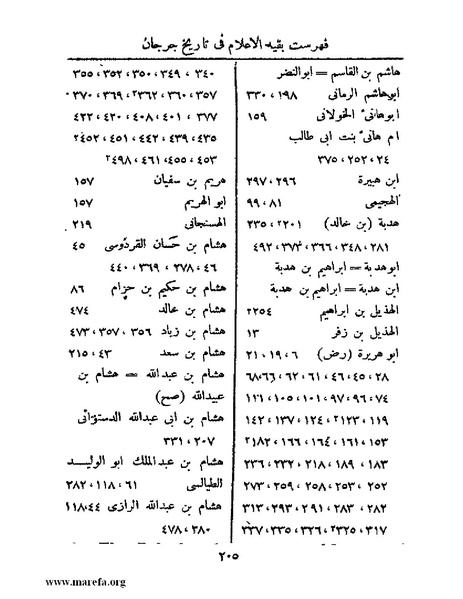 فهرست بقيه الاعلام فى تاريخ جرجان
هاشم بن القاسم = ابوالنضر
ابوهاشم الرمانى ١٩٨ ، ٣٣٠
ابوهانىٔ الخولانى ١٥٩
ام هانىٔ بنت ابى طالب
٢٤ ، ٢٥٢ ، ٣٧٥
ابن هبيرة ٢٩٦ ، ٢٩٧
الهجيمى ٨١ ، ٩٩
هدبة (بن خالد) ٢٢٠١ ، ٢٣٥
٢٨١ ، ٣٤٨ ، ٣٦٦ ، ٣٧٣ ، ٤٩٢
ابوهدبة = ابراهيم بن هدبة
ابن هدبة = ابراهيم بن هدبة
الهذيل بن ابراهيم ٢٢٥٤
الهذيل بن زفر ١٣
ابو هريرة (رض) ٦ ، ١٩ ، ٢١
٢٨ ، ٤٥ ، ٤٦ ، ٦١ ، ٦٢ ، ٦٦ ، ٦٨
٧٤ ، ٩٦ ، ٩٧ ، ١٠١ ، ١٠٥ ، ١٢١
١١٩ ، ٢١٢٣ ، ١٢٤ ، ١٣٧ ، ١٤٢
١٥٣ ، ١٦١ ، ١٦٤ ، ١٦٦ ، ٢١٨٢
١٨٣ ، ١٨٩ ، ٢١٨ ، ٢٣٢ ، ٢٣٦
٢٥٢ ، ٢٥٣ ، ٢٥٨ ، ٢٥٩ ، ٢٧٣
٢٨٢ ، ٢٨٣ ، ٢٩١ ، ٢٩٣ ، ٣١٣
٣١٧ ، ٢٣٢٥ ، ٣٢٦ ، ٣٣٥ ، ٣٣٧
٣٤٠ ، ٣٤٩ ، ٣٥٠ ، ٣٥٢ ، ٣٥٥
٣٥٧ ، ٣٦٠ ، ٢٣٦٢ ، ٣٦٩ ، ٣٧٠
٣٧٧ ، ٤٠١ ، ٤٠٨ ، ٤٢٠ ، ٤٢٢
٤٣٥ ، ٤٣٩ ، ٤٤٢ ، ٤٥١ ، ٢٤٥٢
٤٥٣ ، ٤٥٥ ، ٤٦١ ، ٢٤٩٨
هريم بن سفيان ١٥٧
ابو الهريم ١٥٧
الهسنجانى ٢١٩
هشام بن حسان القردوسى ٤٥
٤٦ ، ٢٧٨ ، ٣٦٩ ، ٤٤٠
هشام بن حكيم بن حزام ٨٦
هشام بن خالد ٤٧٤
هشام بن زياد ٣٥٦ ، ٣٥٧ ، ٤٧٣
هشام بن سعد ٤٣ ، ٢١٥
هشام بن عبدالله = هشام بن
عبيدالله (صح)
هشام بن ابى عبدالله الدستوائى
٢٠٧ ، ٣٣١
هشام بن عبدالملك ابو الوليد
الطيالسى ٦١ ، ١١٨ ، ٢٨٢
هشام بن عبدالله الرازى ٤٤ ، ١١٨
٣٨٠ ، ٤٧٨
٢٠٥
www.marefa.org